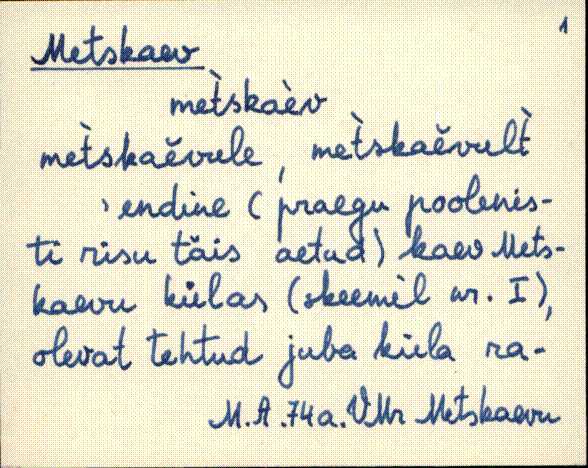 1
Metskaev
met̀skaèv
met̀skaĕvule, met̀skaĕvult̀
› endine (praegu poolenis-
ti risu täis aetud) kaev Mets-
kaevu külas (skeemil nr. I),
olevat tehtud juba küla ra-
M.A. 74a. VMr Metskaevu